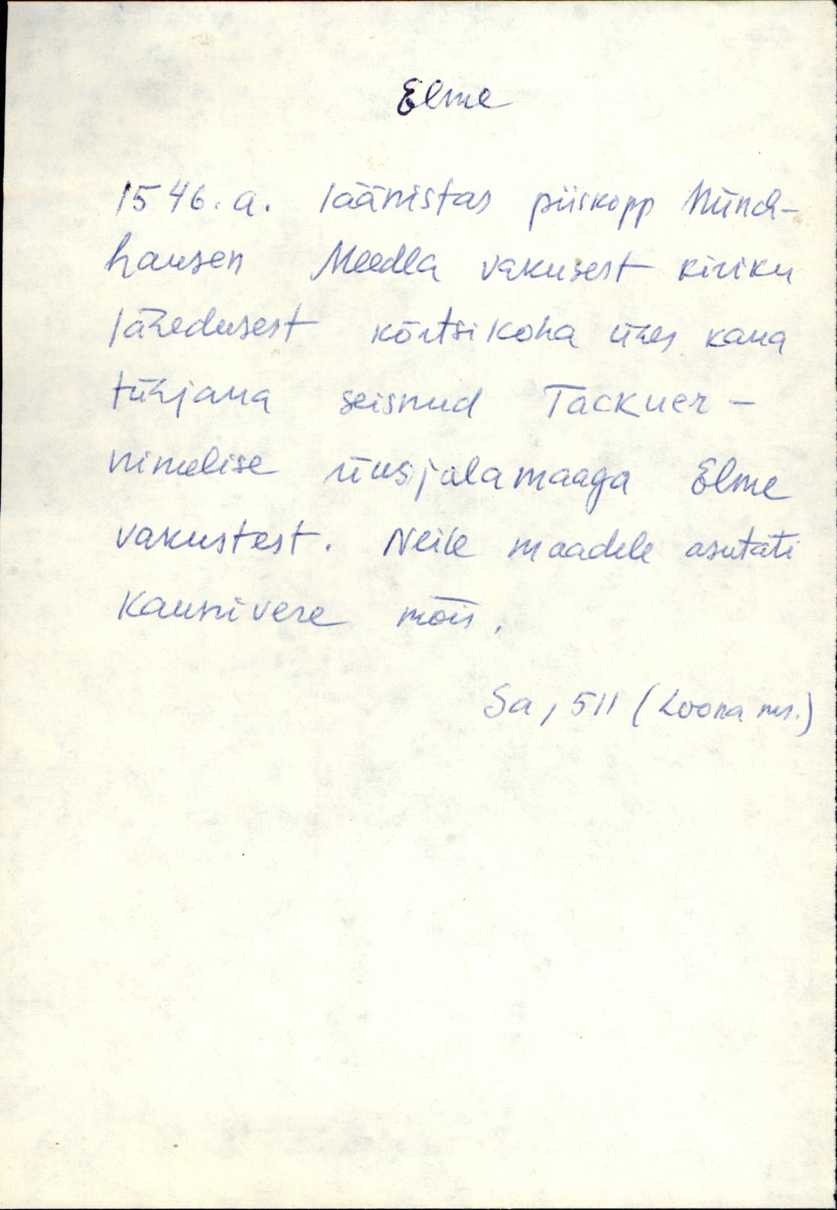 Elme
1546. a. läänistas piiskopp Münch-
hausen Meedla vakusest kiriku
lähedusest kõrtsikoha ühes kaua
tühjana seisnud Tackuer-
nimelise üksjalamaaga Elme
vakustest. Neile maadele asutati
Kaunivere mõis.
Sa, 511 (Loona ms.)